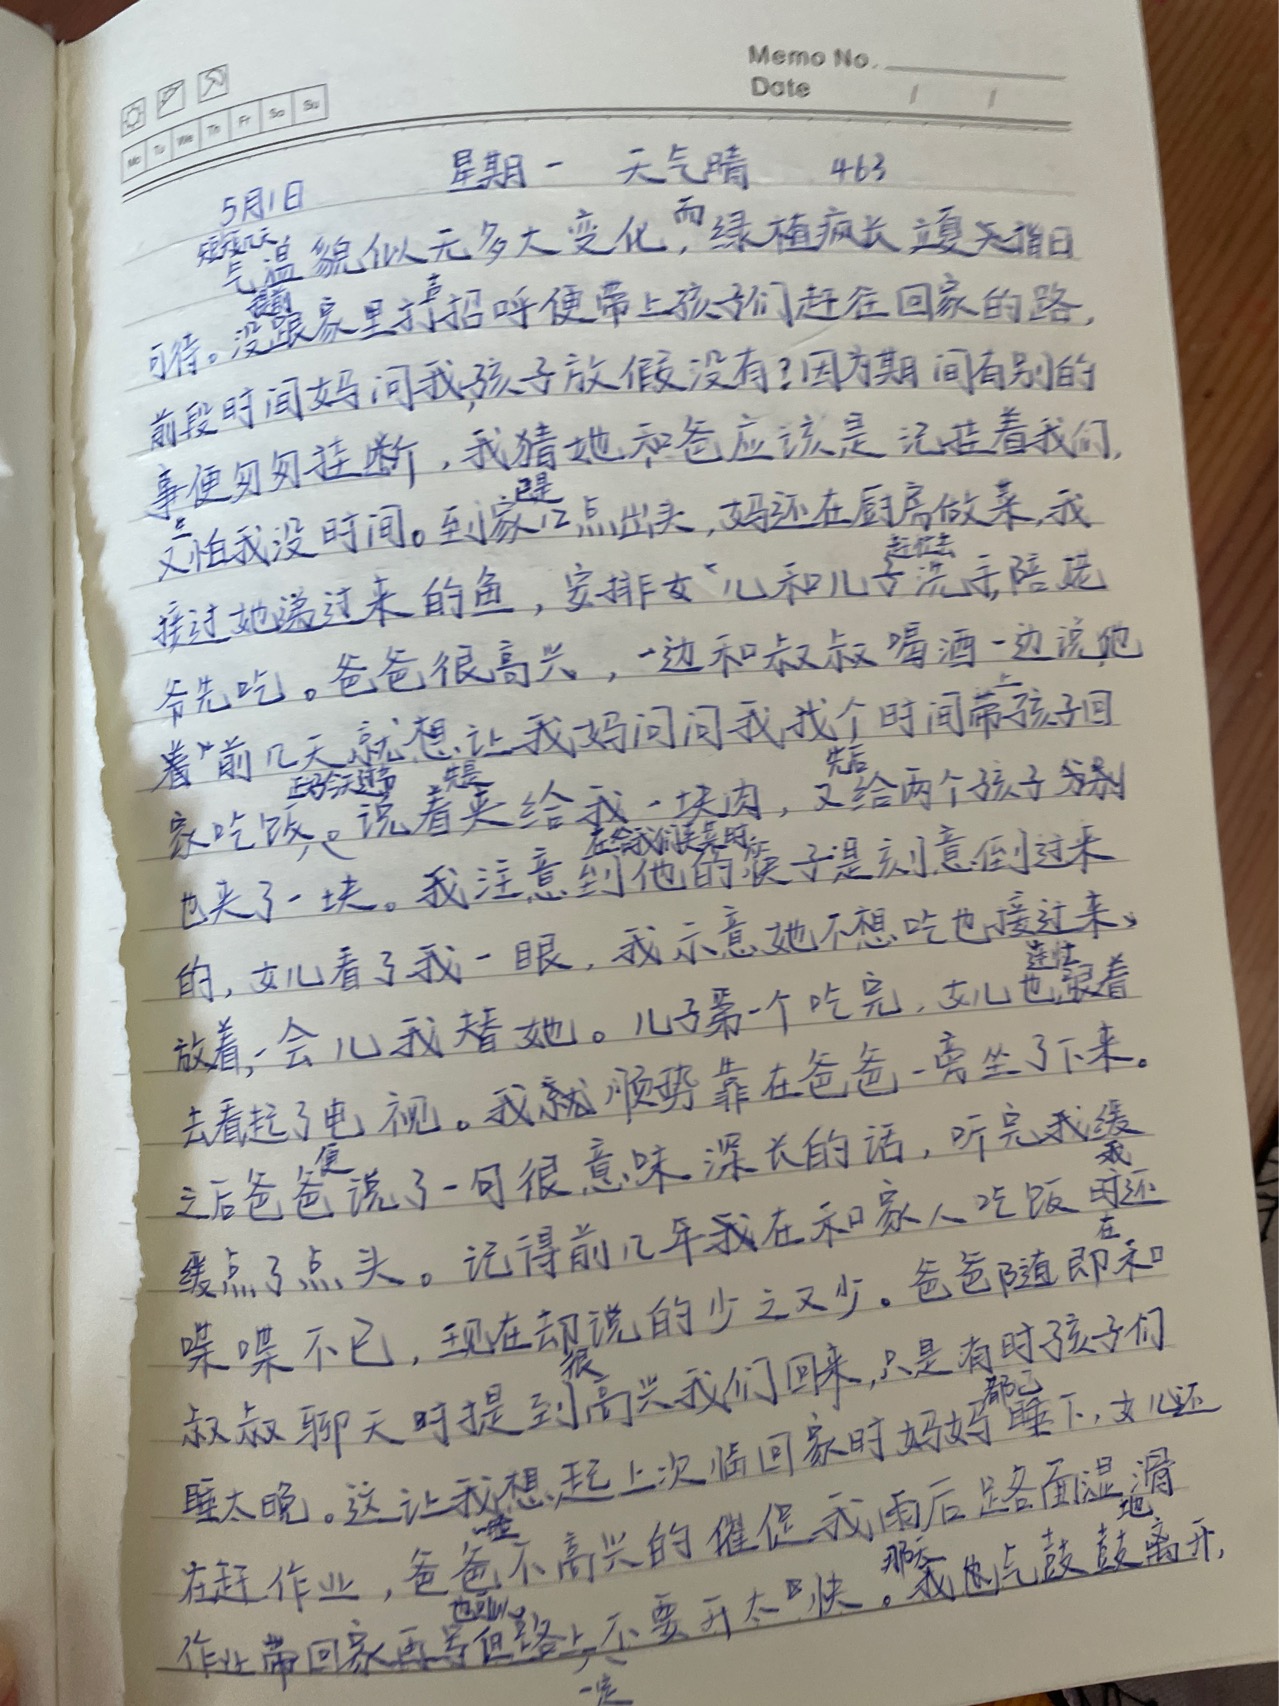 Memo No.
Date / /
Mo Tu We Th Fr Sa Su
5月1日 星期一 天气晴 463
短短几天
气温貌似无多大变化,而绿植疯长,立夏天指日
可待。没提前跟家里打声招呼便带上孩子们赶往回家的路,
前段时间妈问我,孩子放假没有?因为期间有别的
事便匆匆挂断,我猜她和爸应该是记挂着我们,
又怕我没时间。到家已是12点出头,妈还在厨房做菜,我
接过她递过来的鱼,安排女儿和儿子赶忙去洗手,陪姥
爷先吃。爸爸很高兴,一边和叔叔喝酒一边说他
着"前几天就想让我妈问问我找个时间带上孩子回
家吃饭。说着先是夹给我一块肉,又先后给两个孩子分别
也夹了一块。我注意到他在给我们夹菜时的筷子是刻意倒过来
的,女儿看了我一眼,我示意她不想吃也接过来、
放着,一会儿我替她。儿子第一个吃完,女儿也连忙跟着
去看起了电视。我就顺势靠在爸爸一旁坐了下来。
之后爸爸便说了一句很意味深长的话,听完我缓
缓点了点头。记得前几年我在和家人吃饭时我还
喋喋不已,现在却说的少之又少。爸爸随即在和
叔叔聊天时提到很高兴我们回来,只是有时孩子们
睡太晚。这让我想起上次临回家时妈妈都已睡下,女儿还
在赶作业,爸爸一些不高兴的催促我雨后路面湿滑
作业带回家再写也可以。但路上一定不要开太快。那天我也气鼓鼓地离开,